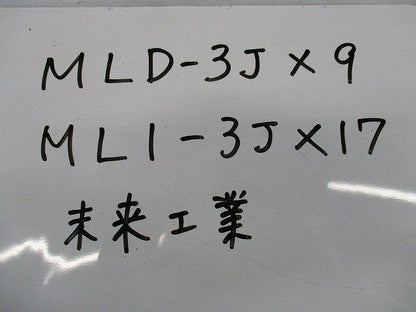 MLD-3J×9
ML1-3J×17
未来工業